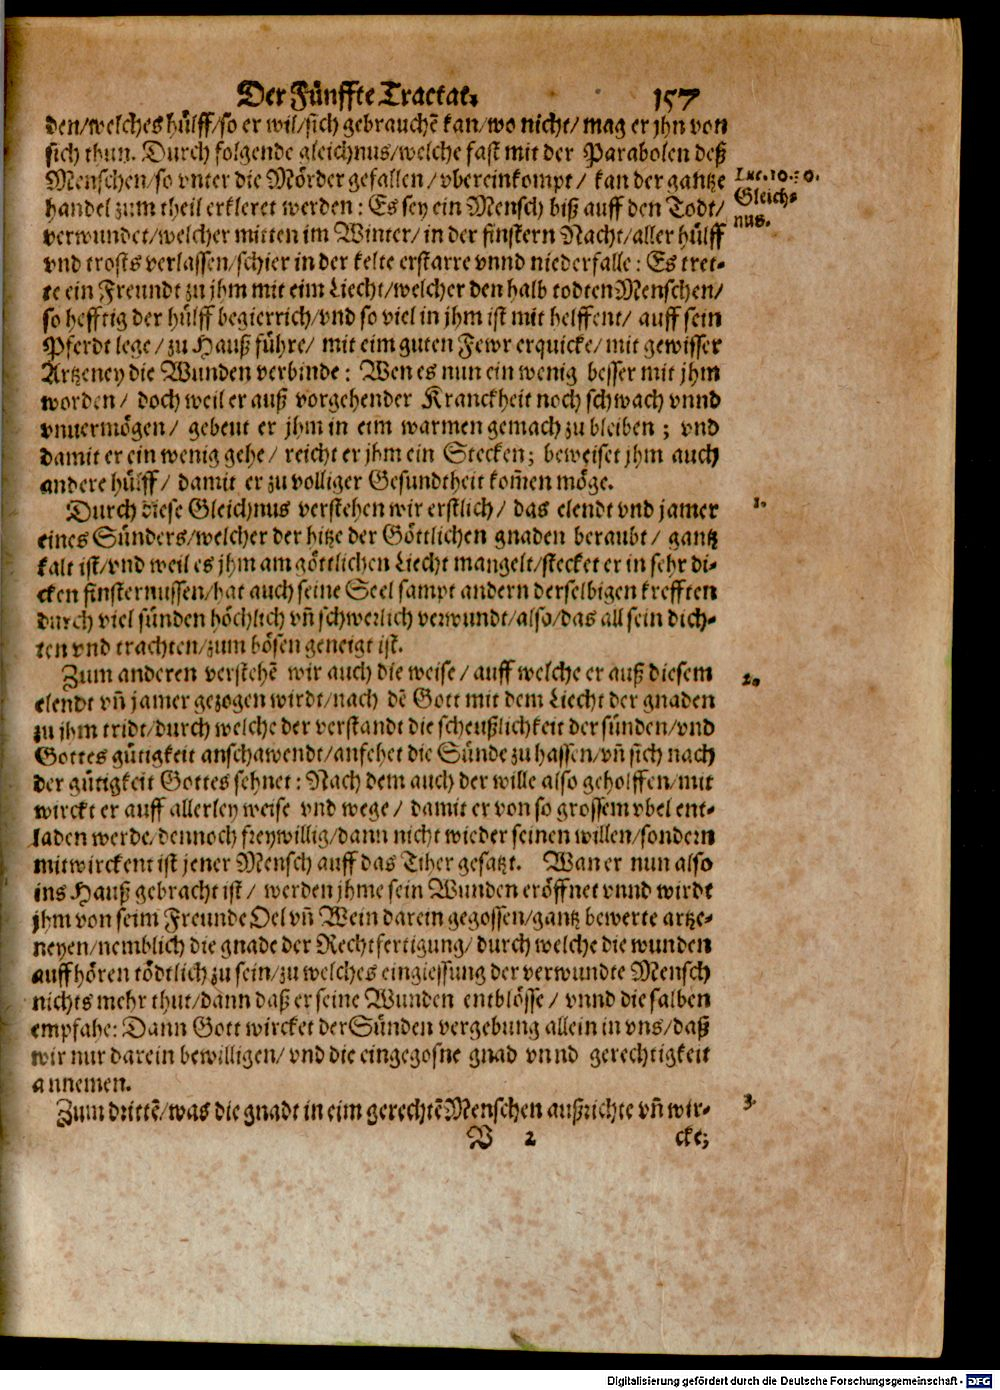 Der Fünffte Tractat. 157
den/welches hülff/so er wil/sich gebrauchẽ kan/wo nicht/ mag er jhn von
sich thun. Durch folgende gleichnus/welche fast mit der Parabolen deß
Menschen/so vnter die Mörder gefallen/vbereinkompt/ kan der gantze
Luc. 10. 30.
handel zum theil erkleret werden: Es sey ein Mensch biß auff den Todt/
Gleich-
nus.
verwundet/welcher mitten im Winter/ in der finstern Nacht/aller hülff
vnd trosts verlassen/schier in der kelte erstarre vnnd niederfalle: Es tret-
te ein Freundt zu jhm mit eim Liecht/welcher den halb todten Menschen/
so hefftig der hülff begierrich/vnd so viel in jhm ist mit helffent/ auff sein
Pferdt lege/ zu Hauß führe/ mit eim guten Fewr erquicke/ mit gewisser
Artzeney die Wunden verbinde: Wen es nun ein wenig besser mit jhm
worden/ doch weil er auß vorgehender Kranckheit noch schwach vnnd
vnuermögen/ gebeut er jhm in eim warmen gemach zu bleiben; vnd
damit er ein wenig gehe/ reicht er jhm ein Stecken; beweiset jhm auch
andere hülff/ damit er zu volliger Gesundtheit kom̃en möge.
Durch diese Gleichnus verstehen wir erstlich/ das elendt vnd jamer
1.
eines Sünders/welcher der hitze der Göttlichen gnaden beraubt/ gantz
kalt ist/vnd weil es jhm am göttlichen Liecht mangelt/stecket er in sehr di-
cken finsternussen/hat auch seine Seel sampt andern derselbigen krefften
durch viel sünden höchlich vñ schwerlich verwundt/also/das all sein dich-
ten vnd trachten/zum bösen geneigt ist.
Zum anderen verstehẽ wir auch die weise/ auff welche er auß diesem
2.
elendt vñ jamer gezogen wirdt/nach dẽ Gott mit dem Liecht der gnaden
zu jhm tridt/durch welche der verstandt die scheußlichkeit der sünden/vnd
Gottes gütigkeit anschawendt/anfehet die Sünde zu hassen/vñ sich nach
der gütigkeit Gottes sehnet: Nach dem auch der wille also geholffen/mit
wirckt er auff allerley weise vnd wege/ damit er von so grossem vbel ent-
laden werde/dennoch freywillig/dann nicht wieder seinen willen/sondern
mitwirckent ist jener Mensch auff das Tiher gesatzt. Wan er nun also
ins Hauß gebracht ist/ werden jhme sein Wunden eröffnet vnnd wirdt
jhm von seim Freunde Oel vñ Wein darein gegossen/gantz bewerte artze-
neyen/nemblich die gnade der Rechtfertigung/durch welche die wunden
auffhören tödtlich zu sein/zu welches eingiessung der verwundte Mensch
nichts mehr thut/dann daß er seine Wunden entblösse/ vnnd die salben
empfahe: Dann Gott wircket der Sünden vergebung allein in vns/daß
wir nur darein bewilligen/vnd die eingegosne gnad vnnd gerechtigkeit
annemen.
Zum drittẽ/was die gnadt in eim gerechtẽ Menschen außrichte vñ wir-
3.
V 2 cke;
Digitalisierung gefördert durch die Deutsche Forschungsgemeinschaft - DFG